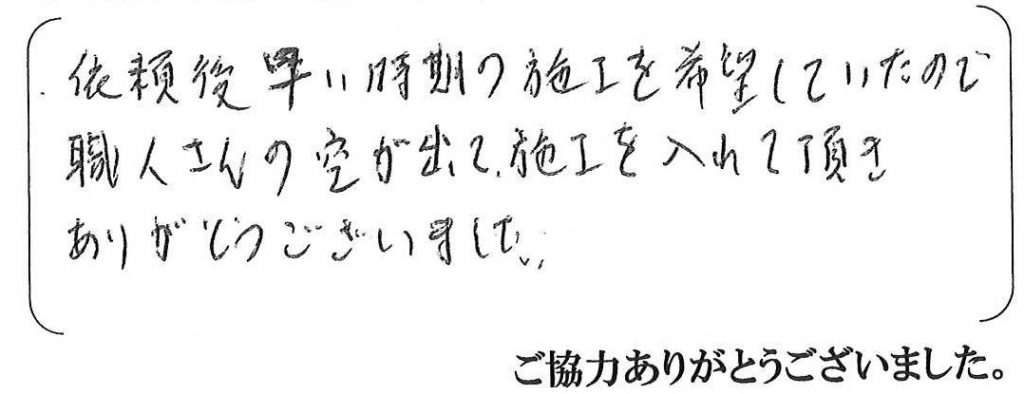 依頼後早い時期の施工を希望していたので
職人さんの空が出て、施工を入れて頂き
ありがとうございました。
ご協力ありがとうございました。